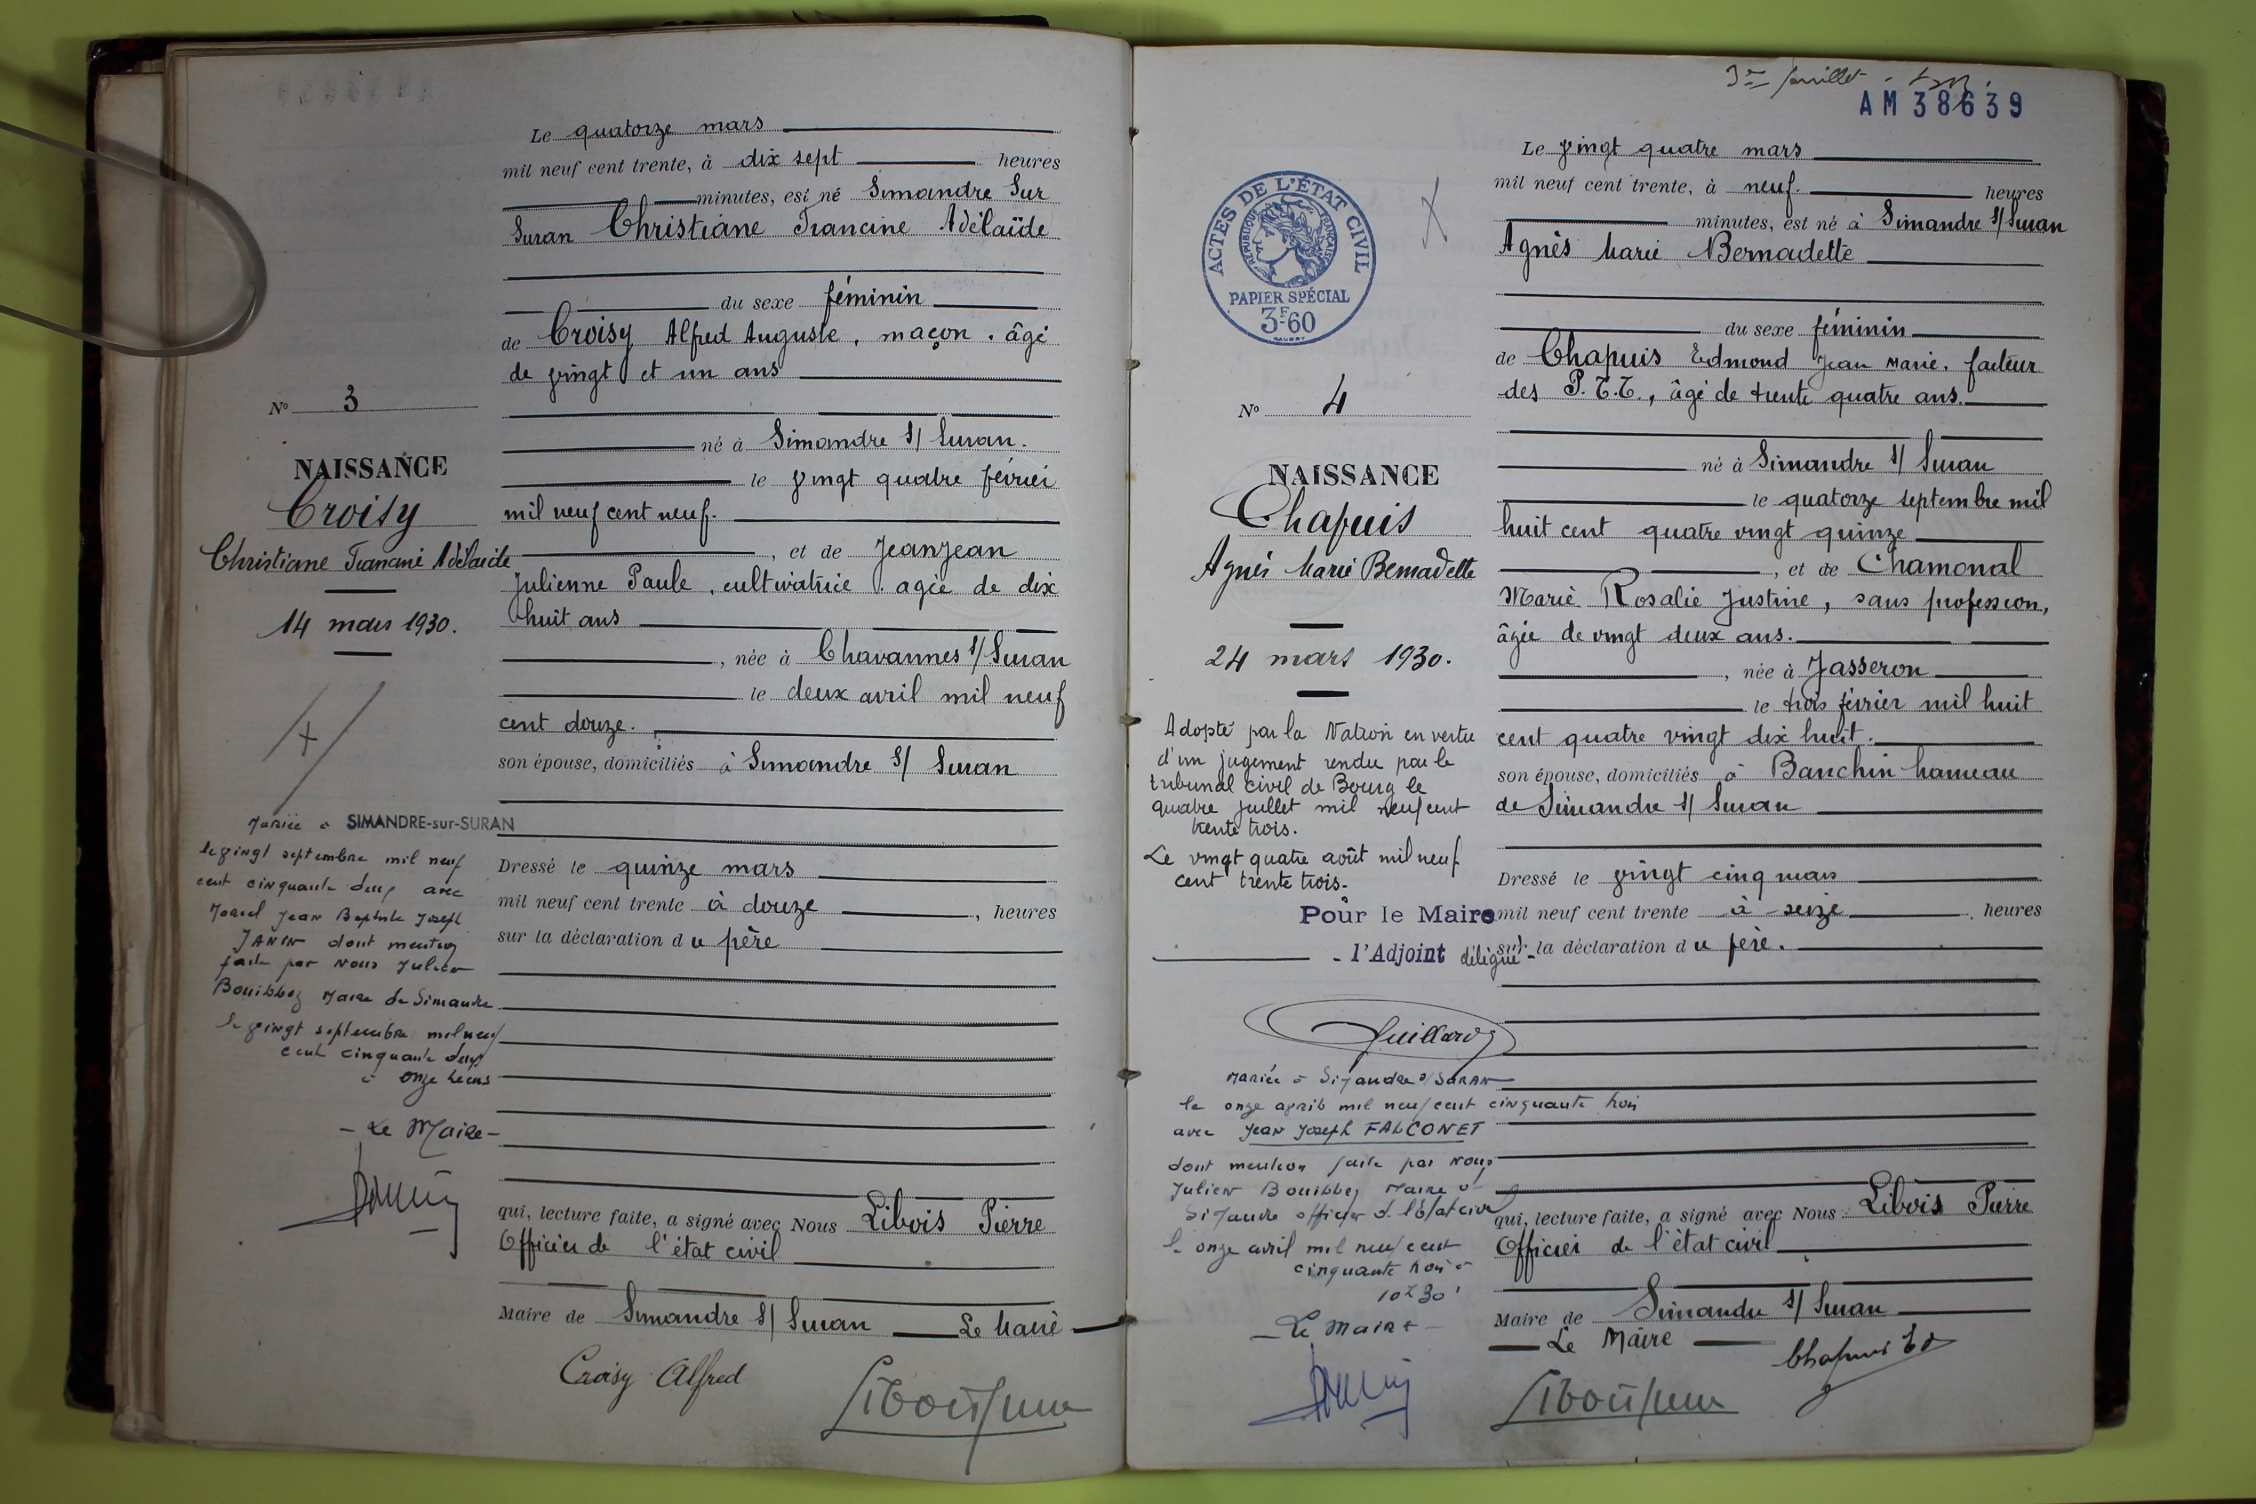 Le quatorze mars
mil neuf cent trente, à dix sept heures
minutes, est né Simandre Sur
Suran Christiane Francine Adélaïde
du sexe féminin
de Croisy Alfred Auguste, maçon. âgé
de vingt et un ans
né à Simandre s/ Suran.
le vingt quatre février
mil neuf cent neuf.
, et de Jeanjean
Julienne Paule, cultivatrice. agée de dix
huit ans
, née à Chavannes s/ Suran
le deux avril mil neuf
cent douze.
son épouse, domiciliés à Simandre s/ Suran
Dressé le quinze mars
mil neuf cent trente à douze , heures
sur la déclaration du père
qui, lecture faite, a signé avec Nous Libois Pierre
Officier de l'état civil
Maire de Simandre s/ Suran Le Maire
Croisy Alfred
No 3
NAISSANCE
Croisy
Christiane Francine Adélaide
14 mars 1930.
Mariée à SIMANDRE-sur-SURAN
le vingt septembre mil neuf
cent cinquante deux avec
Marcel Jean Baptiste Joseph
JANIN dont mention
faite par Nous Julien
Maire de Simandre
le vingt septembre mil neuf
cent cinquante deux
à onze heures
- Le Maire -
3me feuillet
AM 38639
ACTES DE L'ÉTAT CIVIL
RÉPUBLIQUE FRANÇAISE
PAPIER SPÉCIAL
3F60
No 4
NAISSANCE
Chapuis
Agnès Marie Bernadette
24 mars 1930.
Adopté par la Nation en vertu
d'un jugement rendu par le
tribunal civil de Bourg le
quatre juillet mil neuf cent
trente trois.
Le vingt quatre août mil neuf
cent trente trois.
Pour le Maire
- l'Adjoint délégué -
Mariée à Simandre s/ SURAN
le onze avril mil neuf cent cinquante trois
avec Jean Joseph FALCONET
dont mention faite par Nous
Julien Maire de
Simandre officier de l'état civil
le onze avril mil neuf cent
cinquante trois à
10h30'
- Le Maire -
Le vingt quatre mars
mil neuf cent trente, à neuf. heures
minutes, est né à Simandre s/ Suran
Agnès Marie Bernadette
du sexe féminin
de Chapuis Edmond Jean Marie. facteur
des P.T.T., âgé de trente quatre ans.
né à Simandre s/ Suran
le quatorze septembre mil
huit cent quatre vingt quinze
, et de Chamonal
Marie Rosalie Justine, sans profession,
âgée de vingt deux ans.
, née à Jasseron
le trois février mil huit
cent quatre vingt dix huit.
son épouse, domiciliés à Banchin hameau
de Simandre s/ Suran
Dressé le vingt cinq mars
mil neuf cent trente à seize , heures
sur la déclaration du père.
qui, lecture faite, a signé avec Nous Libois Pierre
Officier de l'état civil
Maire de Simandre s/ Suran
Le Maire
Chapuis Ed